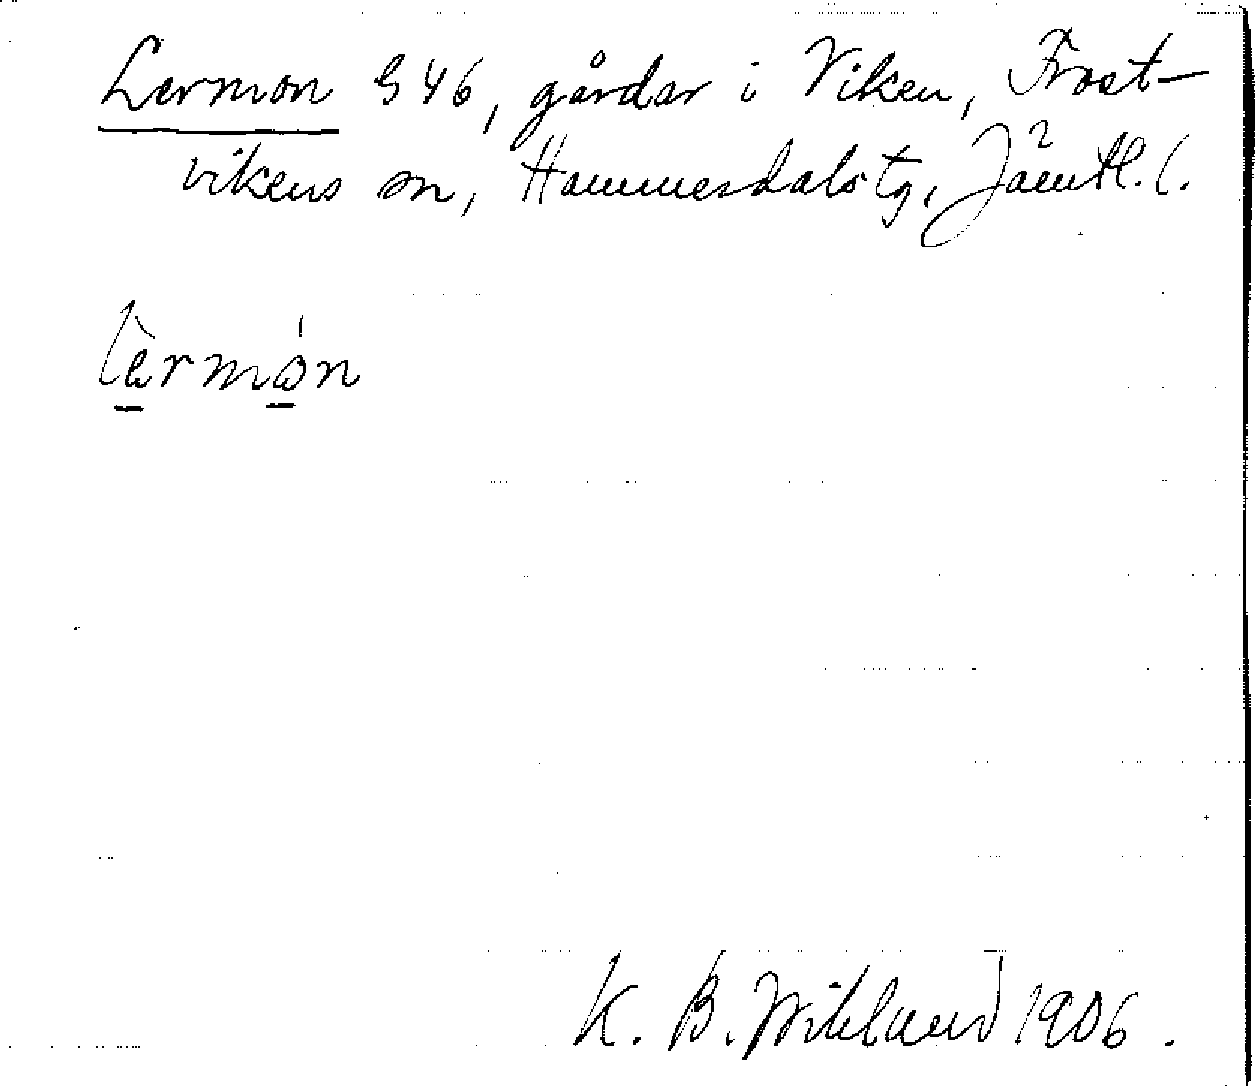 Lermon G46, gårdar i Viken, Frost-
vikens sn, Hammerdals tg, Jämtl. l.
lèrmo̍n
K. B. Wiklund 1906.